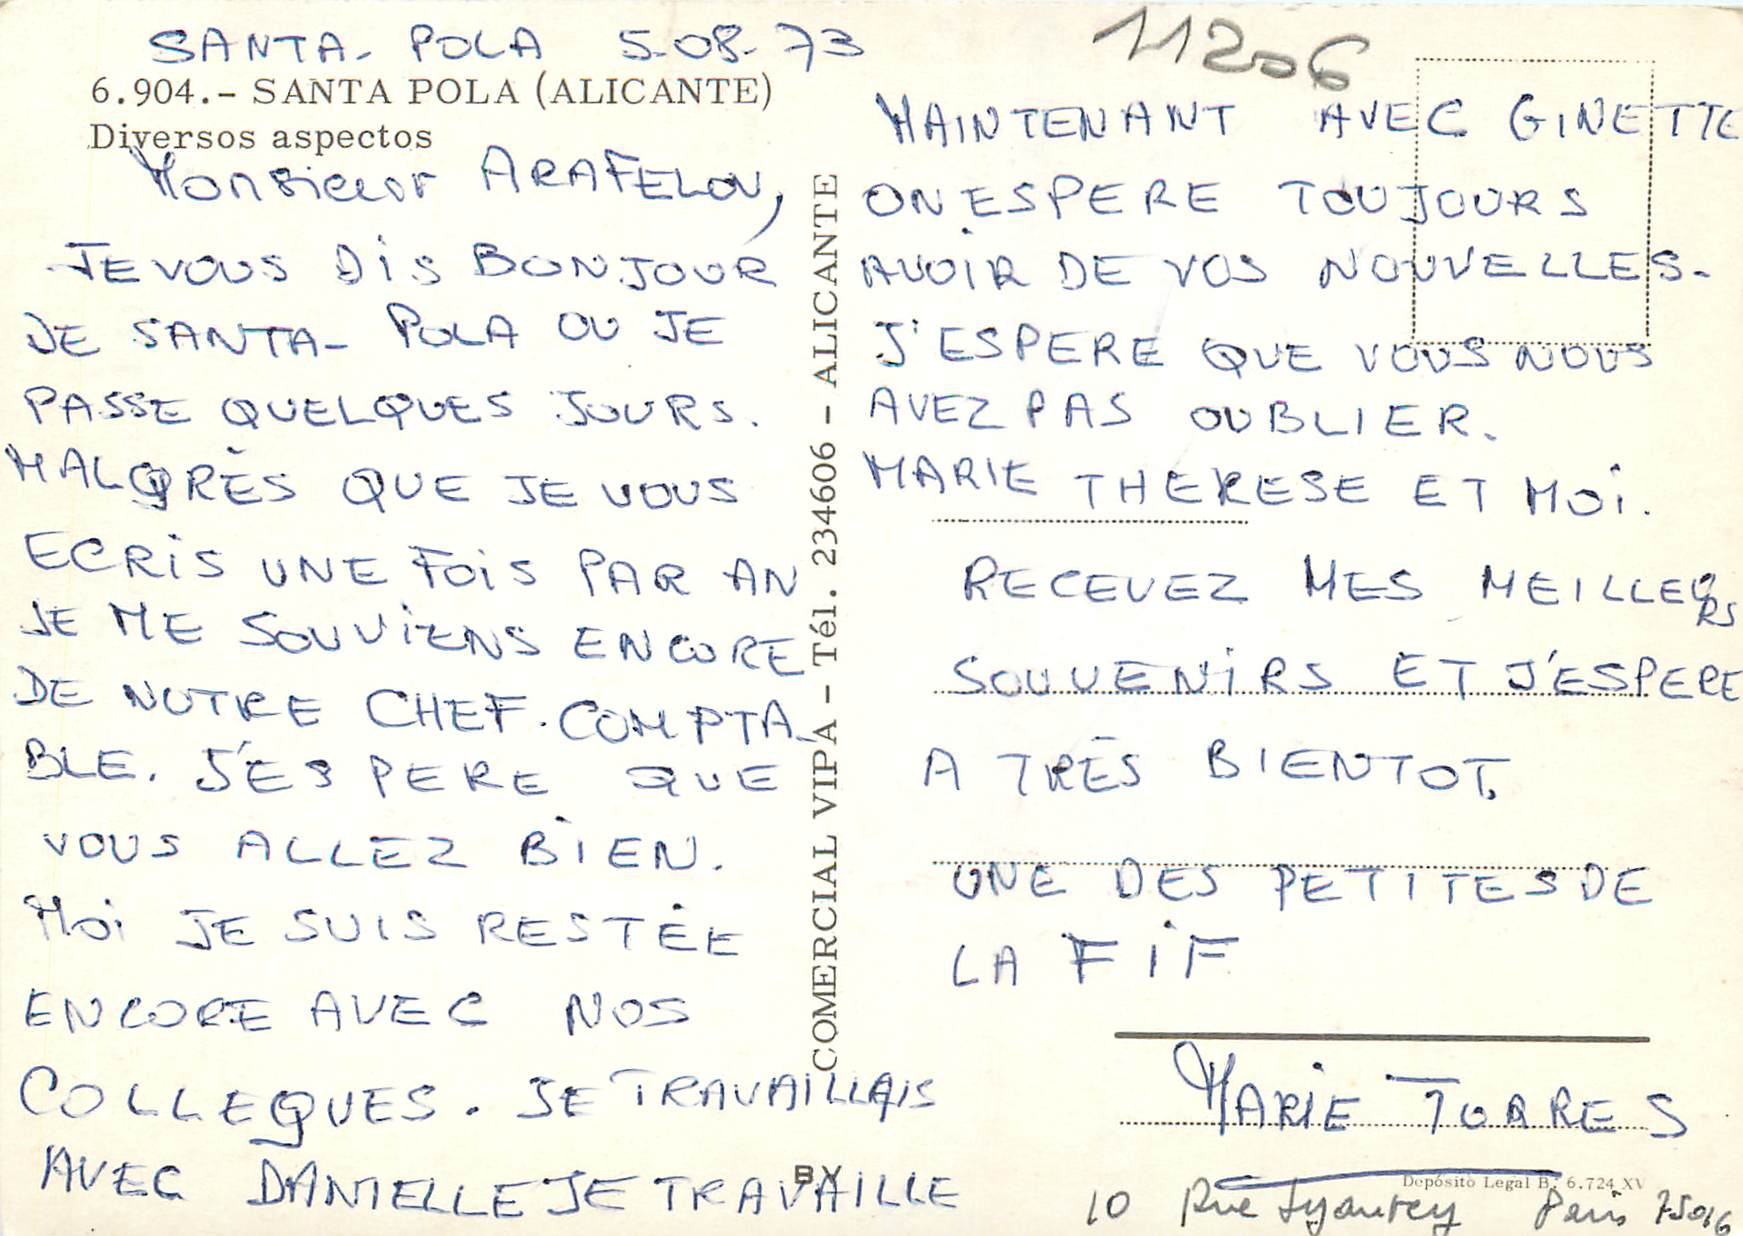 SANTA- POLA 5-08-73
6.904.- SANTA POLA (ALICANTE)
Diversos aspectos
Monsieur ARAFELOV,
JE VOUS DIS BONJOUR
DE SANTA- POLA OU JE
PASSE QUELQUES JOURS.
MALGRÈS QUE JE VOUS
ECRIS UNE FOIS PAR AN
JE ME SOUVIENS ENCORE
DE NOTRE CHEF. COMPTA-
BLE. J'ESPERE QUE
VOUS ALLEZ BIEN.
MOI JE SUIS RESTÉE
ENCORE AVEC NOS
COLLEGUES. JE TRAVAILLAIS
AVEC DANIELLE JE TRAVAILLE
COMERCIAL VIPA - Tél. 234606 - ALICANTE
BY
11206
MAINTENANT AVEC GINETTE
ON ESPERE TOUJOURS
AVOIR DE VOS NOUVELLES-
J'ESPERE QUE VOUS NOUS
AVEZ PAS OUBLIER.
MARIE THERESE ET MOI.
RECEVEZ MES MEILLEURS
SOUVENIRS ET J'ESPERE
A TRÈS BIENTOT,
UNE DES PETITES DE
LA FIF
MARIE TORRES
Depósito Legal B. 6.724 XV
10 Rue Paris 75016